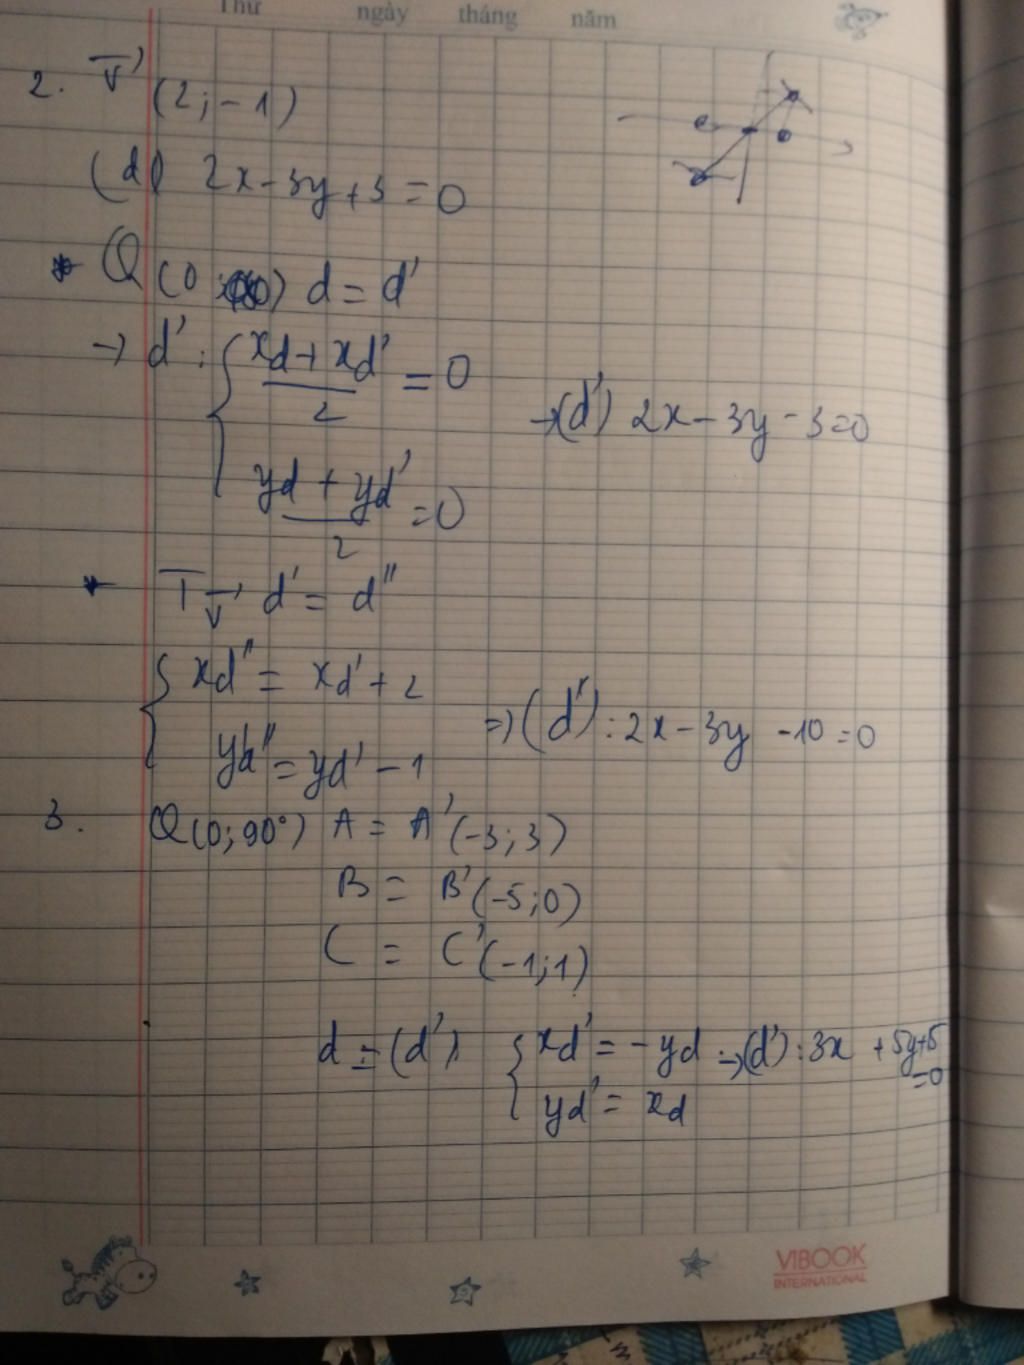 Thứ ngày tháng năm
2. v⃗ (2; -1)
(d) 2x - 3y + 3 = 0
* Q (0; ) d = d'
→ d' : { (xd + xd')/2 = 0
→ (d') 2x - 3y - 3 = 0
(yd + yd')/2 = 0
* T v⃗ d' = d''
{ xd'' = xd' + 2
yd'' = yd' - 1
=> (d'') : 2x - 3y - 10 = 0
3. Q(0; 90°) A = A' (-3; 3)
B = B' (-5; 0)
C = C' (-1; 1)
d = (d') { xd' = -yd → (d') : 3x + 5y + 5 = 0
yd' = xd
VIBOOK
INTERNATIONAL